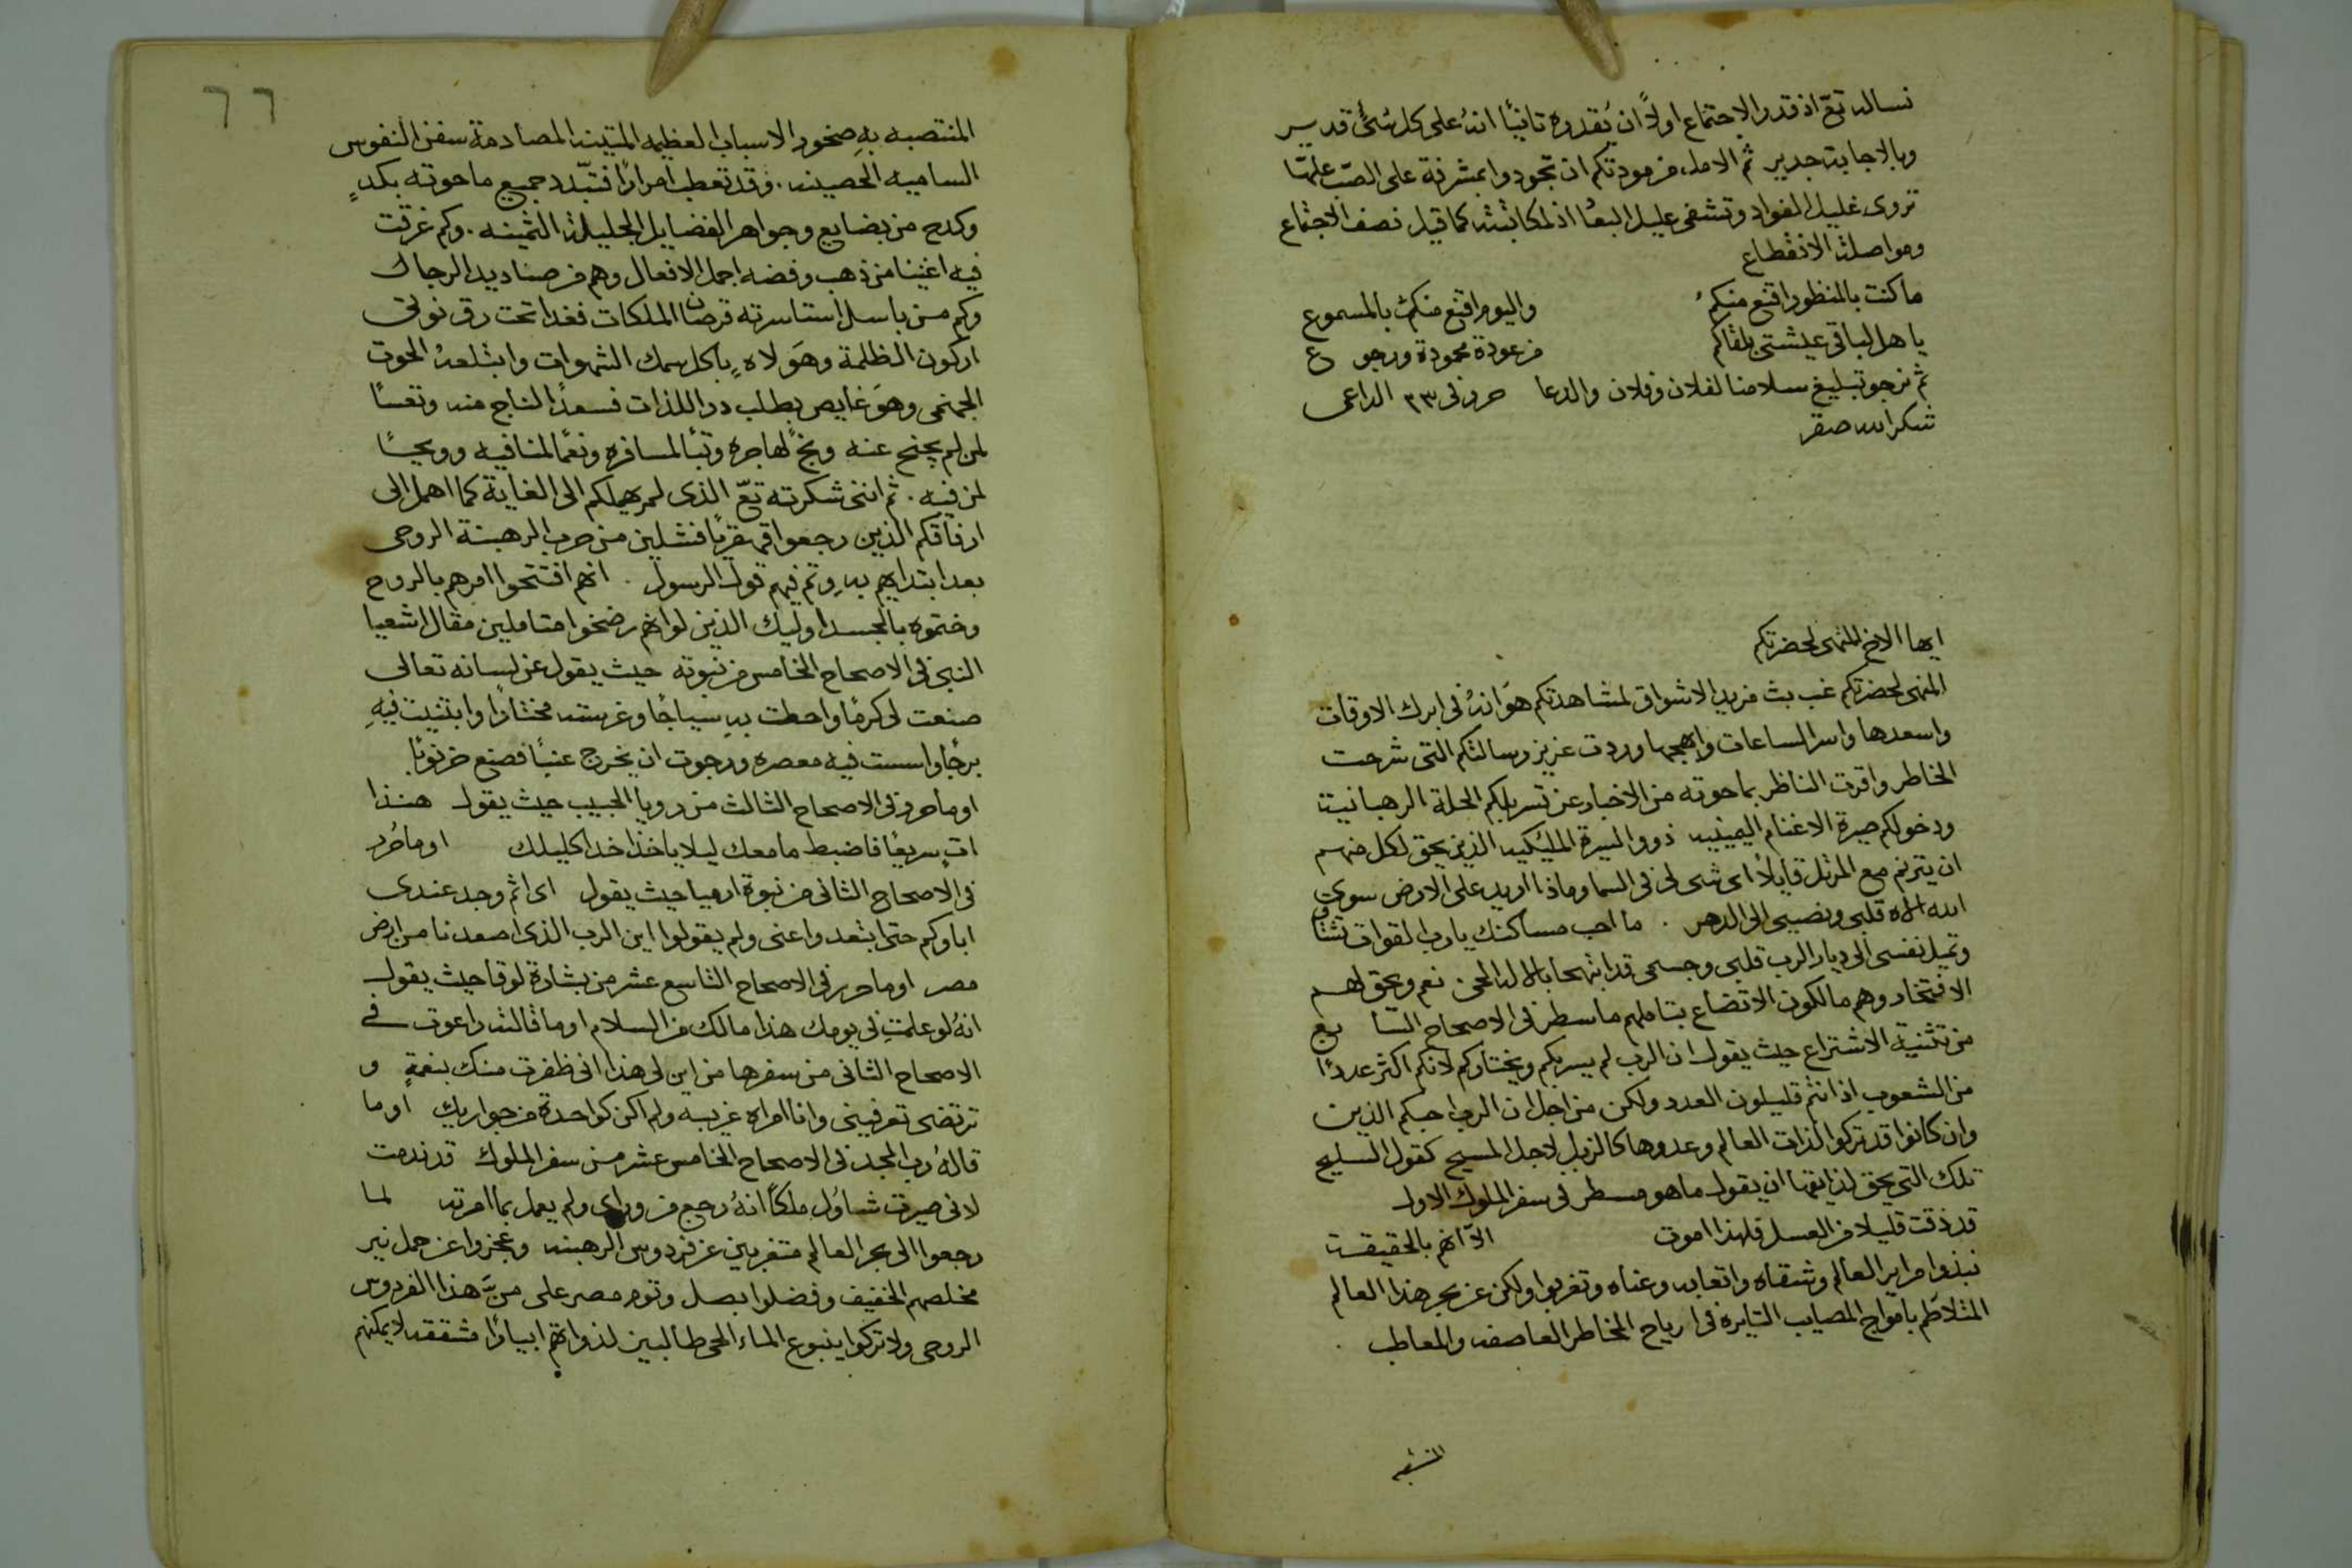 نساله تعّ اذ قدر الاجتماع اولًا ان يُقدره ثانيًا انهُ على كل شئ قدير
وبالاجابة جدير ثم الامل من مودتكم ان تجودوا بمشرفة على الصبّ علّها
تروى غليل الفواد وتشفى عليل البعاد اذ المكاتبته كما قيل نصف الاجتماع
ومواصلة الانقطاع
ما كنت بالمنظور اقنع منكمُ واليوم اقنع منكمُ بالمسموع
يا هل لباقى عيشتى بلقاكم من عودة محمودة ورجوع
ثم نرجو تبليغ سلامنا لفلان وفلان والدعا حرر فى ٢٣ الداعى
شكرالله صقر
ايها الاخ المنهى لحضرتكم
المنهى لحضرتكم غب بث مزيد الاشواق لمشاهدتكم هوَ انهُ فى ابرك الاوقات
واسعدها واسر الساعات وابهجها وردت عزيز رسالتكم التى شرحت
الخاطر واقرت الناظر بما حوته من الاخبار عن تسربلكم الحلة الرهبانية
ودخولكم صيرة الاغنام اليمينيه ذوو السيرة الملئكيه الذين يحق لكل منهم
ان يترنم مع المرتل قايلًا اى شى لى فى السما وماذا اريد على الارض سوى
الله الاه قلبى ونصيبى الى الدهر . ما احب مساكنك يا رب القوات تشتاق
وتميل نفسى الى ديار الرب قلبى وجسمى قد ابتهجا بالاله الحى نعم ويحق لهم
الافتخار وهم مالكون الاتضاع بتاملهم ما سطر فى الاصحاح السّابع
من تثنية الاشتراع حيث يقول ان الرب لم يسربكم ويختاركم لانكم اكثر عددًا
من الشعوب اذ انتم قليلون العدد ولكن من اجل ان الرب احبكم الذين
وان كانوا قد تركوا لذات العالم وعدوها كالزبل لاجل المسيح كقول السليح
تلك التى يحق لذايقها ان يقول ما هو مسطر فى سفر الملوك الاول
قد ذقت قليلا من العسل فلهذا اموت الّا انهم بالحقيقة
نبذوا مراير العالم وشقاه واتعابه وعناه وتغربوا ولكن عن بحر هذا العالم
المتلاطم بامواج المصايب الثايرة فى ارياح المخاطر العاصفه والمعاطب
المنتصبه
٦٦
المنتصبه بهِ صخور الاسباب العظيمه المتينه المصادمة سفن النفوس
الساميه الحصينه . وقد تعطب امرارًا فتبّدد جميع ما حوته بكدٍ
وكدح من بضايع وجواهر الفضايل الجليلة الثمينه . وكم غرقت
فيه اغنيا من ذهب وفضه اجمل الافعال وهم من صناديد الرجال
وكم من باسل استاسرته قرصان الملكات فغدا تحت رق نوتى
اركون الظلمة وهوَلاهِ ياكل سمك الشهوات وابتلعهُ الحوت
الجهنمى وهوَ غايص بطلب در اللذات فسعدًا لناج منه وتعسًا
لمن لم يجنح عنه وبخٍ لهاجره وتبًا لمسافره ونعمًا لمنافيه وويحًا
لمن فيه . ثم اننى شكرته تعّ الذى لم يهملكم الى الغاية كما اهمل الى
ارفاقكم الذين رجعوا قهقريًا فشلين من حرب الرهبنة الروحى
بعد ابتدايهم بهِ وتم فيهم قول الرسول . انهم افتتحوا امرهم بالروح
وختموه بالجسد اوليك الذين لو انهم رضخوا متاملين مقال اشعيا
النبى فى الاصحاح الخامس من نبوته حيث يقول عن لسانه تعالى
صنعت لى كرمًا واحطت بهِ سياجًا وغرسته مختارًا وابتنيت فيهِ
برجًا واسست فيه معصره ورجوت ان يخرج عنبًا فصنع خرنوبًا
او ما حرر فى الاصحاح الثالث من رويا الحبيب حيث يقول هنذا
اتٍ سريعًا فاضبط ما معك ليلا ياخذ احد اكليلك او ما حُرر
فى الاصحاح الثانى من نبوة ارميا حيث يقول اى اثم وجد عندى
اباوكم حتى ابتعدوا عنى ولم يقولوا اين الرب الذى اصعدنا من ارض
مصر او ما حرر فى الاصحاح التاسع عشر من بشارة لوقا حيث يقول
انهُ لو علمتِ فى يومك هذا مالك من السلام او ما قالته راعوت فى
الاصحاح الثانى من سفرها من اين لى هذا انى ظفرت منك بنعمةٍ و
ترتضى تعرفينى وانا امراه غريبه ولم اكن كواحدة من جواريك او ما
قالهُ رب المجد فى الاصحاح الخامس عشر من سفر الملوك قد ندمت
لانى صيرت شاوُل ملكًا انهُ رجع من وراى ولم يعمل بما امرته لما
رجعوا الى بحر العالم متغربين عن فردوس الرهبنه وعجزوا عن حمل نير
مخلصهم الخفيف وفضلوا بصل وثوم مصر على منّ هذا الفردوس
الروحى ولا تركوا ينبوع الماء الحى طالبين لذواتهم ابيارًا مشققه لا يمكنهم